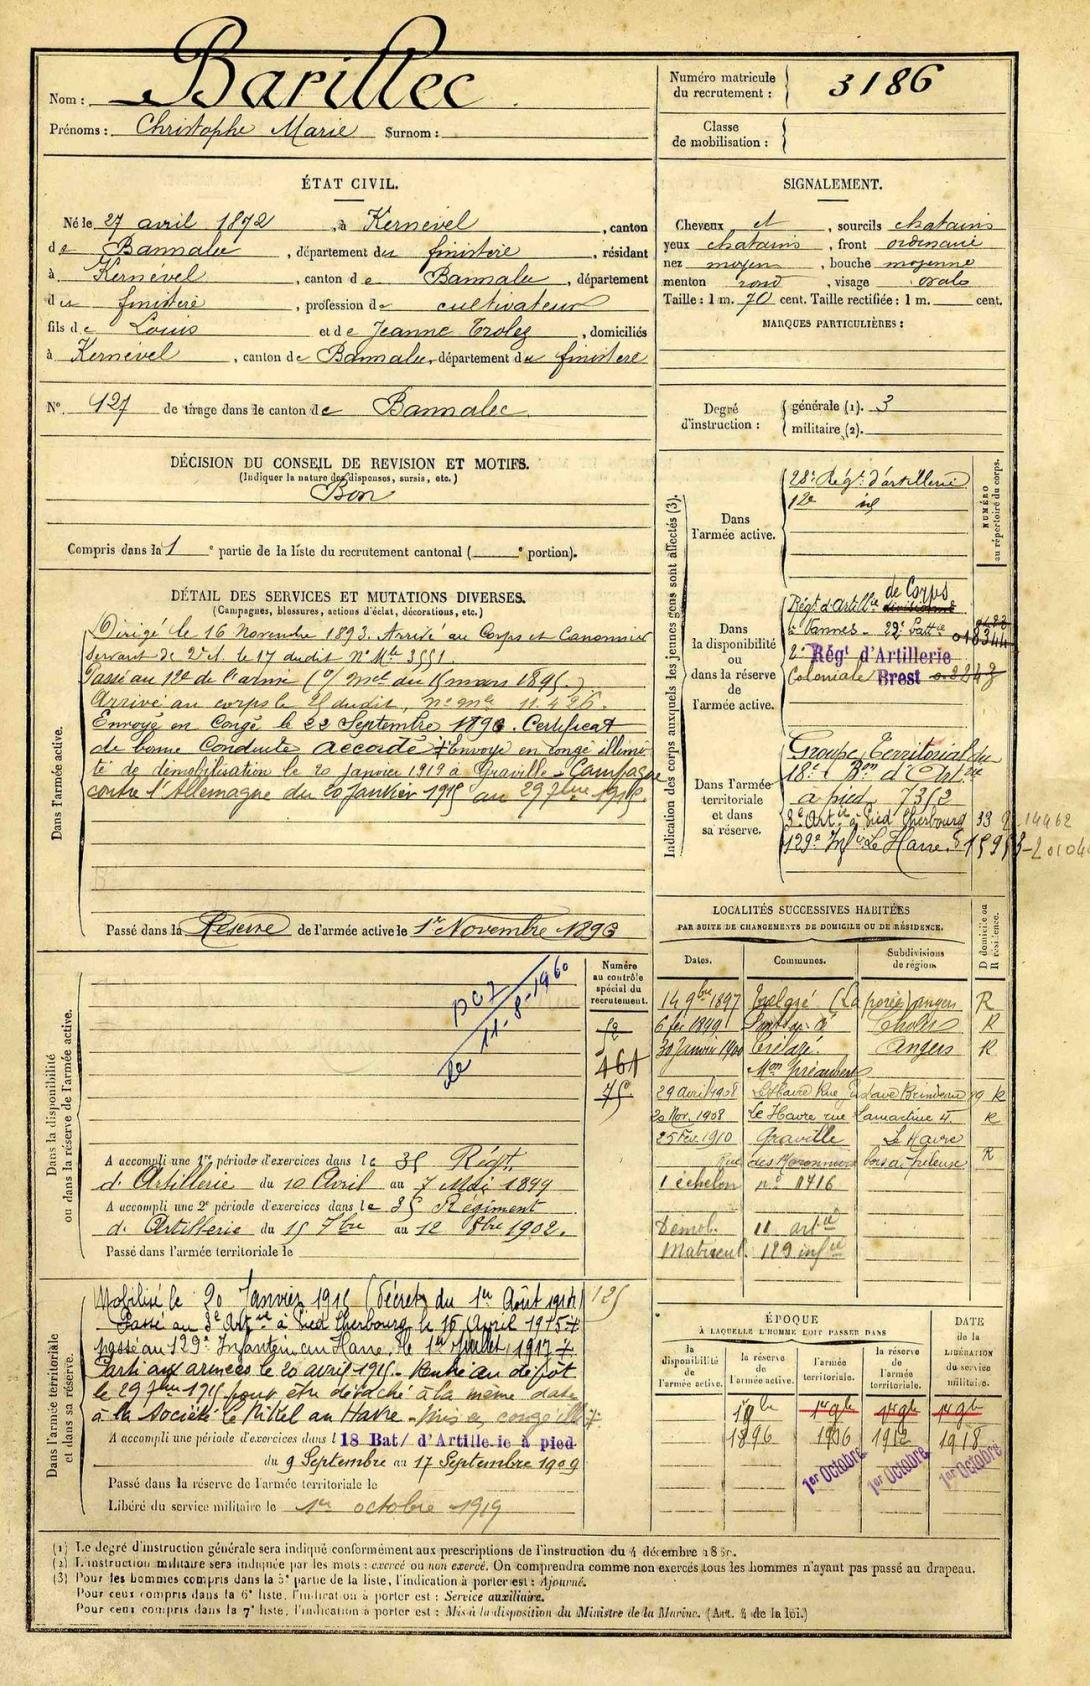 Nom : Barillec
Prénoms : Christophe Marie Surnom :
Numéro matricule du recrutement : 3186
Classe de mobilisation :
ÉTAT CIVIL.
Né le 27 avril 1872, à Kernével, canton
de Bannalec, département du finistère, résidant
à Kernével, canton de Bannalec, département
du finistère, profession de cultivateur
fils de Louis et de Jeanne Trolez, domiciliés
à Kernével, canton de Bannalec, département du finistère
N° 127 de tirage dans le canton de Bannalec
SIGNALEMENT.
Cheveux et, sourcils chatains
yeux chatains, front ordinaire
nez moyen, bouche moyenne
menton rond, visage ovale
Taille : 1 m. 70 cent. Taille rectifiée : 1 m. cent.
MARQUES PARTICULIÈRES :
Degré d'instruction : générale (1). 3
militaire (2).
DÉCISION DU CONSEIL DE REVISION ET MOTIFS.
(Indiquer la nature des dispenses, sursis, etc.)
Bon
Compris dans la 1e partie de la liste du recrutement cantonal ( e portion).
DÉTAIL DES SERVICES ET MUTATIONS DIVERSES.
(Campagnes, blessures, actions d'éclat, décorations, etc.)
Dans l'armée active.
Dirigé le 16 Novembre 1893. Arrivé au Corps et Canonnier
Servant de 2e cl. le 17 dudit N° Mle 3551
Passé au 12e de l'arme ( mars 1895.)
Arrivé au corps le dudit, n° mle 11.426.
Envoyé en Congé le 22 Septembre 1896. Certificat
de bonne Conduite accordé + Envoyé en congé illimi-
té de démobilisation le 20 Janvier 1919 à Graville - Campagne
contre l'Allemagne du 20 Janvier 1915 au 29 7bre 1915.
Passé dans la Réserve de l'armée active le 1er Novembre 1896
Indication des corps auxquels les jeunes gens sont affectés (3).
NUMÉRO au répertoire du corps.
Dans l'armée active.
28e Régt d'artillerie
12e id
Dans la disponibilité ou dans la réserve de l'armée active.
de Corps
Régt d'Artillie divisionne
à Vannes - 22e Battie 018344
2e Régt d'Artillerie
Coloniale Brest
Dans l'armée territoriale et dans sa réserve.
Groupe Territorial du
18e Bon d'Artrie
à pied 7352
3e Artie à Pied Cherbourg
129e Infie Le Havre
LOCALITÉS SUCCESSIVES HABITÉES
PAR SUITE DE CHANGEMENTS DE DOMICILE OU DE RÉSIDENCE.
Dates. Communes. Subdivisions de région. D domicile ou R résidence.
14 9bre 1897 Trélazé angers R
6 fév 1899 Cholet R
30 Janvier 1900 Trélazé. Angers R
29 avril 1908 Le Havre Rue Gustave Brindeau R
20 Nov. 1908 Le Havre rue Lamartine R
25 Fév. 1910 Graville Le Havre
Rue des Maronniers R
1 échelon n° 1716
Démob. 11 artie
Matricul. 129 infie
Dans la disponibilité ou dans la réserve de l'armée active.
Numéro au contrôle spécial du recrutement.
461
75
DCD
le 11-8-1960
A accompli une 1re période d'exercices dans le 35 Régt
d'Artillerie du 10 Avril au 7 Mai 1899
A accompli une 2e période d'exercices dans le 35 Régiment
d'Artillerie du 15 7bre au 12 8bre 1902.
Passé dans l'armée territoriale le
Dans l'armée territoriale et dans sa réserve.
Mobilisé le 20 Janvier 1915 (Décret du 1er Août 1914) 125
Passé au 3e Artie à Pied Cherbourg le 16 Avril 1915 +
passé au 129e Infanterie au Havre, le 1er Juillet 1917 +
Parti aux armées le 20 avril 1915. Rentré au dépôt
le 29 7bre 1915 pour être détaché à la même date
à la Société le Nickel au Havre - Mis en congé ill
A accompli une période d'exercices dans l 18 Bat/ d'Artillerie à pied
du 9 Septembre au 17 Septembre 1909
Passé dans la réserve de l'armée territoriale le
Libéré du service militaire le 1er octobre 1919
ÉPOQUE
À LAQUELLE L'HOMME DOIT PASSER DANS
DATE de la LIBÉRATION du service militaire.
la disponibilité de l'armée active. la réserve de l'armée active. l'armée territoriale. la réserve de l'armée territoriale.
1 9bre 1er 9bre 1er 9bre 1er 9bre
1896 1906 1912 1918
1er Octobre 1er Octobre 1er Octobre
(1) Le degré d'instruction générale sera indiqué conformément aux prescriptions de l'instruction du 4 décembre
(2) L'instruction militaire sera indiquée par les mots : exercé ou non exercé. On comprendra comme non exercés tous les hommes n'ayant pas passé au drapeau.
(3) Pour les hommes compris dans la 5e partie de la liste, l'indication à porter est : Ajourné.
Pour ceux compris dans la 6e liste, l'indication à porter est : Service auxiliaire.
Pour ceux compris dans la 7e liste, l'indication à porter est : Mis à la disposition du Ministre de la Marine. (Art. 4 de la loi.)